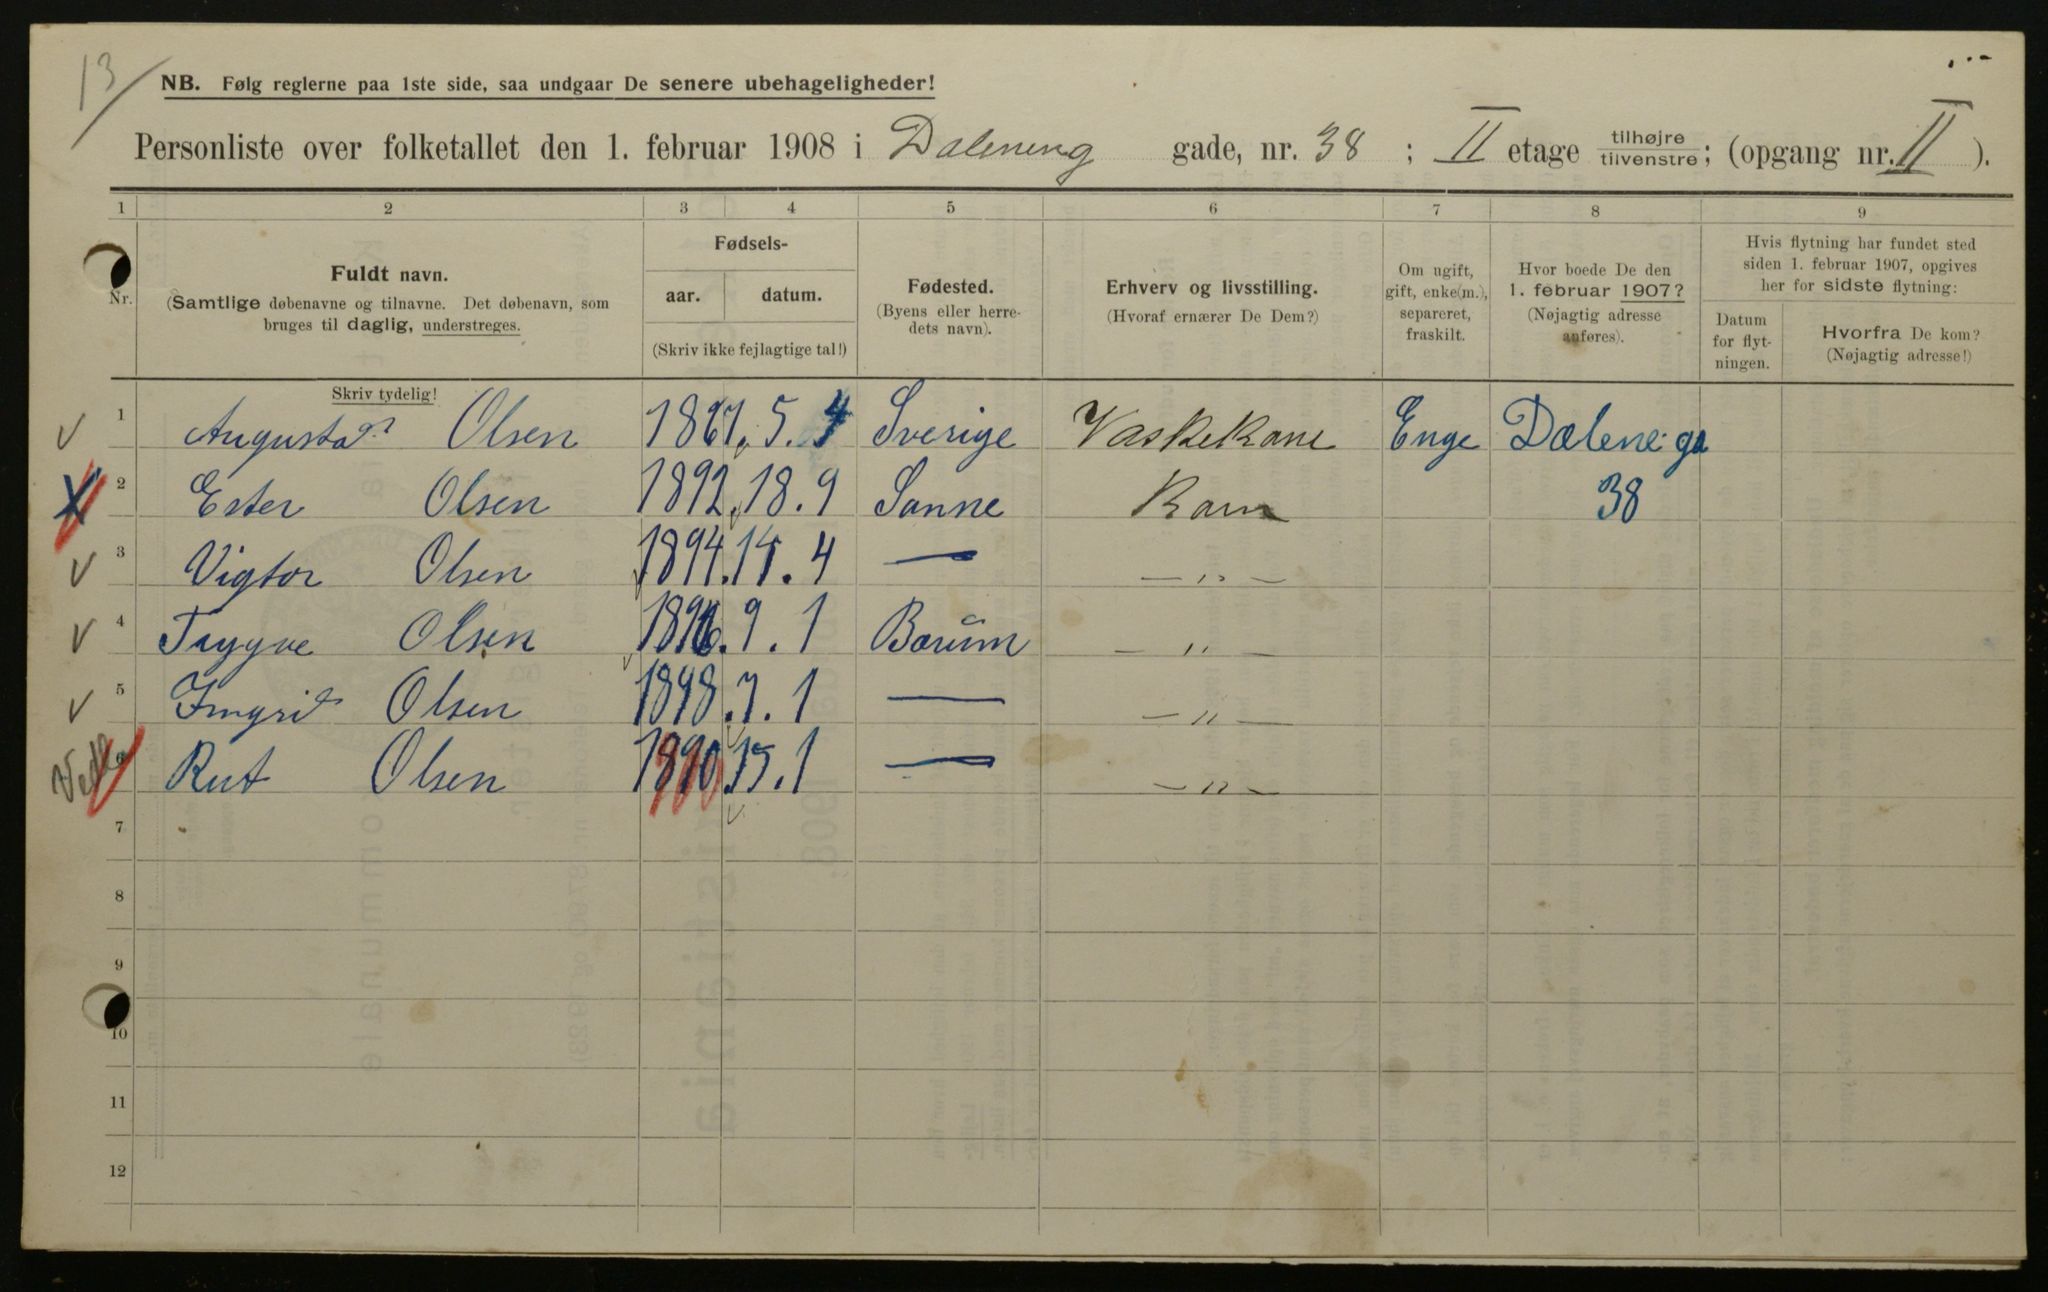 13/
NB. Følg reglerne paa 1ste side, saa undgaar De senere ubehageligheder!
Personliste over folketallet den 1. februar 1908 i Dalening gade, nr. 38 ; II etage tilhøjre tilvenstre ; (opgang nr. II ).
1 2 3 4 5 6 7 8 9
Nr.
Fuldt navn.
(Samtlige døbenavne og tilnavne. Det døbenavn, som
bruges til daglig, understreges.
Fødsels-
aar. datum.
(Skriv ikke fejlagtige tal!)
Fødested.
(Byens eller herre-
dets navn).
Erhverv og livsstilling.
(Hvoraf ernærer De Dem?)
Om ugift,
gift, enke(m.),
separeret,
fraskilt.
Hvor boede De den
1. februar 1907?
(Nøjagtig adresse
anføres).
Hvis flytning har fundet sted
siden 1. februar 1907, opgives
her for sidste flytning:
Datum
for flyt-
ningen.
Hvorfra De kom?
(Nøjagtig adresse!)
Skriv tydelig!
1 Augusta Olsen 1861. 5. 4 Sverige Vaskekone Enge Dælene ga
2 Ester Olsen 1892. 18. 9 Sanne Barn 38
3 Vigtor Olsen 1894. 4 — — " —
4 Trygve Olsen 1896. 9. 1 Bærum — " —
5 Ingrid Olsen 1898. 7. 1 — — " —
6 Rut Olsen 15. 1 — — " —
7
8
9
10
11
12